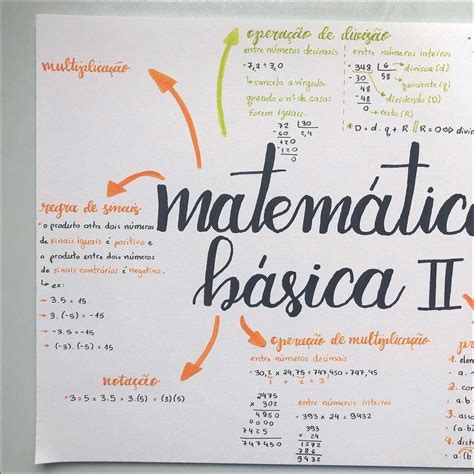 multiplicação
operação de divisão
entre números decimais
• 7,2 ÷ 3,0
↳ cancela a vírgula
quando o nº de casas
forem iguais.
- 72 | 30
60 2,4
120
- 120
0
entre números inteiros
• 348 | 6 → divisor (d)
- 30 58 → quociente (q)
48
- 48 → dividendo (D)
0 → resto (R)
• D = d . q + R // R = 0 ⇔ divis
regra de sinais
o produto entre dois números
de sinais iguais é positivo e
o produto entre dois números
de sinais contrários é negativo.
↳ ex:
→ 3.5 = 15
→ 3.(-5) = -15
→ -3.5 = -15
→ (-3).(-5) = 15
matemátic
básica II
notação
• 3 x 5 = 3.5 = 3.(5) = (3)(5)
operação de multiplicação
entre números decimais
• 30,2 x 24,75 = 747,450 = 747,45
1 + 2 = 3
2475
x 302
4950
0000
7425
747450
entre números inteiros
• 393 x 24 = 9432
393
x 24
1572
786
9432
pr
1. 
• a.
2. com
a.b
3. asso
(a.b)
4. dist
• a.(